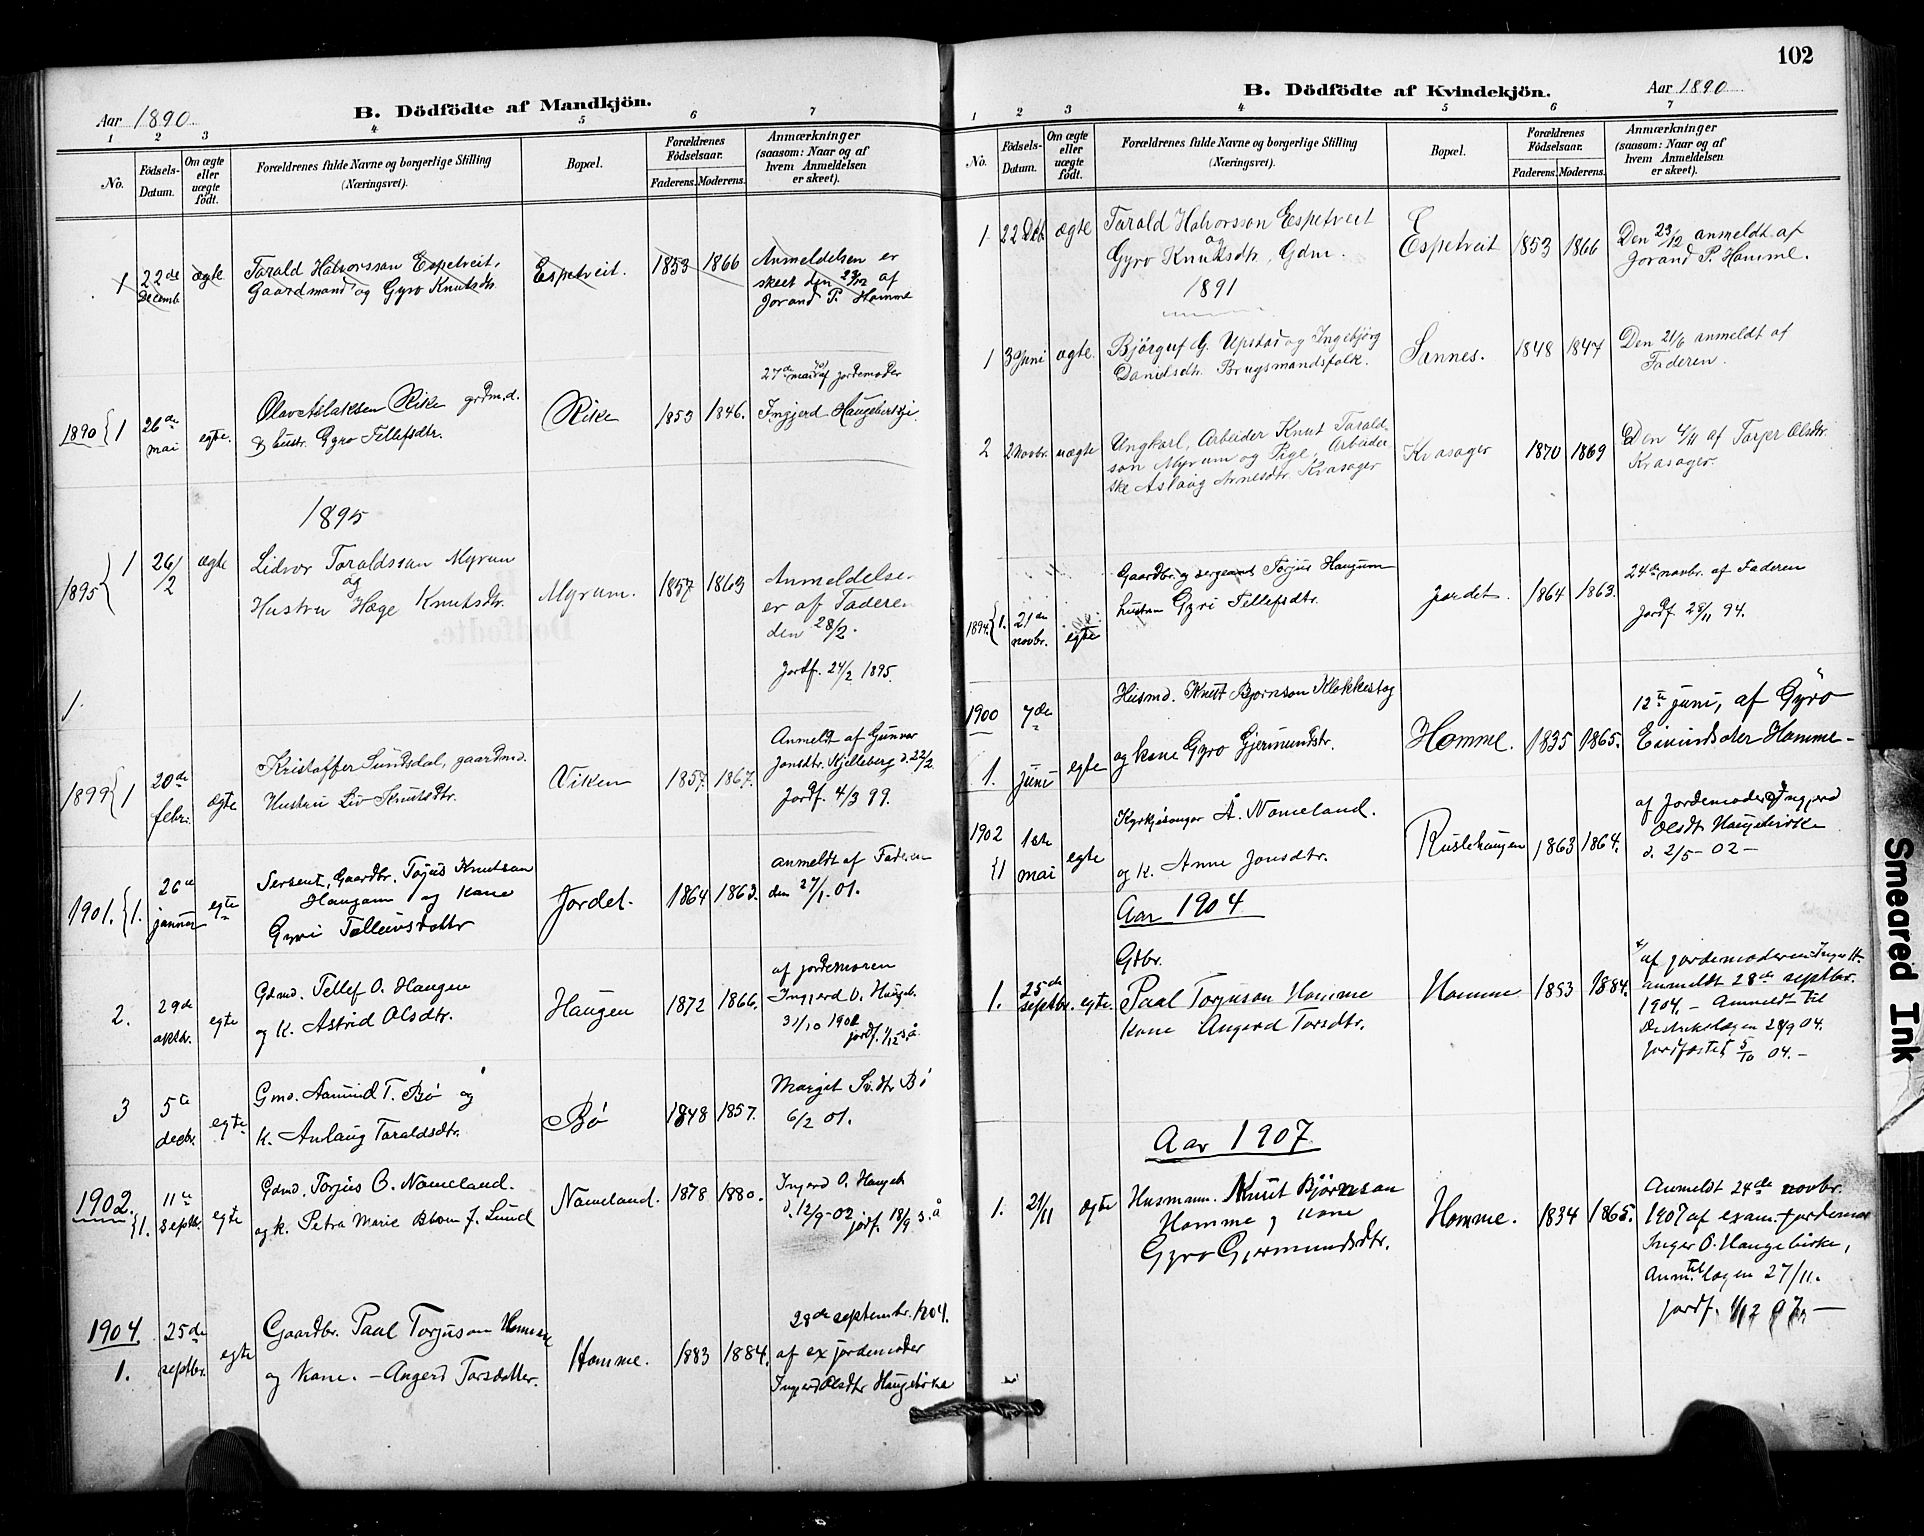 102
Aar 1890
B. Dödfödte af Mandkjön.
1 2 3 4 5 6 7
No.
Födsels-Datum.
Om ægte eller uægte födt.
Forældrenes fulde Navne og borgerlige Stilling
(Næringsvei).
Bopæl.
Forældrenes Födselsaar.
Faderens. Moderens.
Anmærkninger
(saasom: Naar og af
hvem Anmeldelsen
er skeet).
1 22de Decemb ægte Tarald Halvorsson Espetveit, Espetveit. 1853 1866 Anmeldelsen er
Gaardmand og Gyro Knutsdtr. skeet den 23/12 af
Jorand P. Homme
27de mai af jordemoder
1890 { 1 26de mai egte. Olav Aslaksen Rike grdm.d. Rike 1853 1846. Ingjerd Haugebirkji.
& hustr. Gyro Tellefsdtr.
1895
1895 { 1 26/2 ægte Lidvor Taraldsson Myrum
og
Hustru Hæge Knutsdtr. Myrum. 1857 1863 Anmeldelse
er af Faderen
den 28/2.
Jordf. 27/2 1895.
1.
1899 { 1 20de febr. ægte Kristoffer Sundsdal, gaardmd. Viken 1857. 1867. Anmeldt af Gunvor
Hustru Liv Knutsdtr. Jonsdtr. Kjelleberg d. 22/2.
Jordf. 4/3 99.
1901. { 1. 26de januar egte Sersent, Gaardbr. Tojus Knutson Jordet. 1864 1863. anmeldt af Faderen
Haugum og Kone den 27/1. 01.
Gyri Tellevsdatter
2. 29de oktbr. egte Gdmd. Tellef O. Haugen Haugen 1872 1866. af jordemoren
og K. Astrid Olsdtr. Ingjerd O. Haugeb.
31/10 1901
jordf. 1/12 s. å.
3 5te decbr. egte Gmd. Aamund T. Bö og Bö 1848 1857. Margit Sv.dtr Bö
K. Aslaug Taraldsdtr. 6/2 01.
1902. {1. 11te septbr. egte Gdmd. Torjus O. Nomeland. Nomeland. 1878 1880. Ingerd O. Haugeb
og k. Petra Marie Blom f. Lund d. 12/9-02 jorf. 18/9 s. å
1904. 1. 25de septbr. egte Gaardbr. Paal Torjuson Homme Homme. 1883 1884. 28de septembr. 1904.
og Kone. - Angerd Torsdatter. af ex jordemoder
Ingjerd Olsdtr Haugebirke
Aar 1890
B. Dödfödte af Kvindekjön.
1 2 3 4 5 6 7
No.
Födsels-Datum.
Om ægte eller uægte födt.
Forældrenes fulde Navne og borgerlige Stilling
(Næringsvei).
Bopæl.
Forældrenes Födselsaar.
Faderens. Moderens.
Anmærkninger
(saasom: Naar og af
hvem Anmeldelsen
er skeet).
1 22 Deb ægte Tarald Halvorsson Espetveit Espetveit 1853 1866 Den 23/12 anmeldt af
og
Gyro Knutsdtr, Gdm. Jorand P. Homme.
1891
1 3 Juni ægte. Björguf G. Upstad og Ingebjörg Sinnes. 1848 1847 Den 21/6 anmeldt af
Danielsdtr. Brugsmandsfolk. Faderen.
2 2 Novbr. uægte Ungkarl, Arbeider Knut Tarald-
son Myrum og Pige, Arbeider-
ske Aslaug Arnesdtr. Kvasager Kvasager 1870 1869 Den 4/11 af Torjer Olsdtr.
Kvasager.
1894. { 1. 21de novbr. egte Gaardbr. og sergeant Torjus Haugum jordet. 1864 1863. 24de novbr. af Faderen
hustru Gyri Tellefsdtr. jordf. 28/11 94.
1900 1. 7de juni egte Husmd. Knut Bjornson Klokkestog Homme. 1835 1865. 12te juni, af Gyro
og kone Gyro Gjermundstr. Eivindsdter Homme -
1902 {1 1ste mai egte Kyrkjesongar A. Nomeland. Rustehaugen 1863 1864. af Jordemoder Ingjerd
og k. Anne Jonsdtr. Olsdtr Haugebirke
d. 2/5 - 02 -
Aar 1904
Gdbr.
1. 25de septbr. egte. Paal Torjuson Homme Homme 1883 1884. af jordemoderen Inger H.
kone Angerd Torsdtr. anmeldt 28de septbr.
1904. - Anmeldt til
Destriktslægen 28/9 04.
Jordfæstet 5/10 04. -
Aar 1907.
1. 21/11 egte Husmann. Knut Björnson Homme. 1834 1865. Anmeldt 24de novbr.
Homme og Kone 1907 af exam. jordemor
Gyro Gjermundsdtr. Inger O. Haugebirke,
Anm. til lægen 27/11.
jordf. 1/12 07. -
Smeared Ink